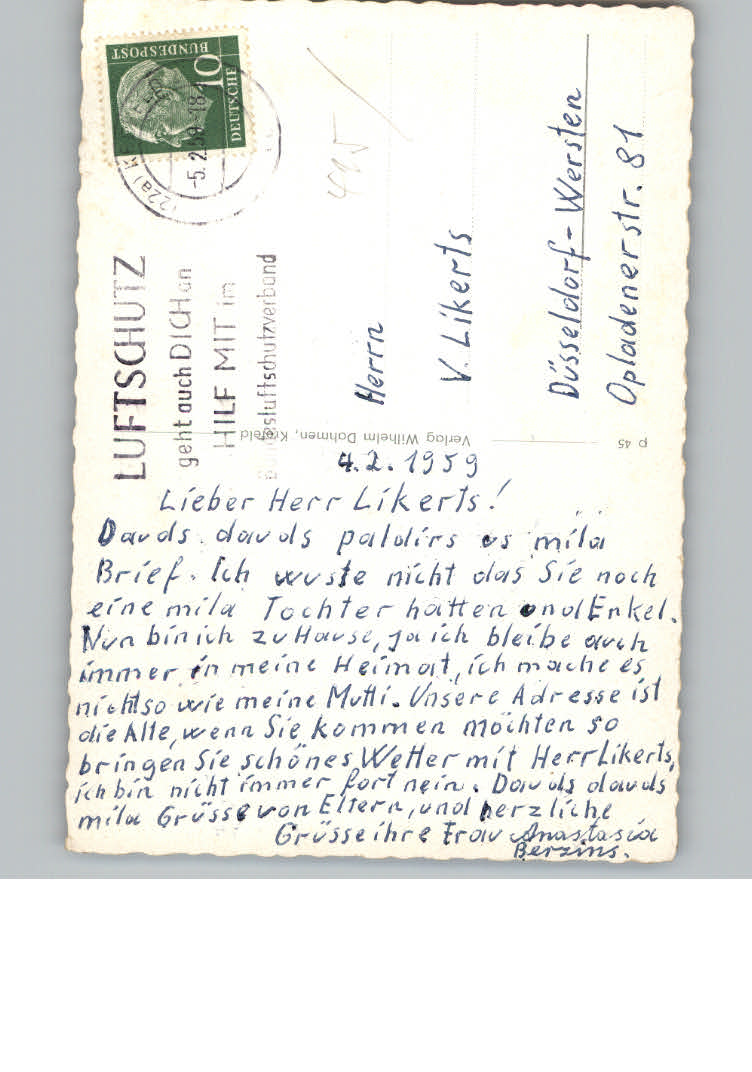 BUNDESPOST
10
DEUTSCHE
(22a) KR
-5.2.59-18
LUFTSCHUTZ
geht auch DICH an
HILF MIT im
Bundesluftschutzverband
495
Herrn
V. Likerts
Düsseldorf-Wersten
Opladenerstr. 81
Verlag Wilhelm Dahmen, Krefeld
p 45
4.2.1959
Lieber Herr Likerts!
Dauds dauds paldirs us mila
Brief. Ich wuste nicht das Sie noch
eine mila Tochter hatten und Enkel.
Nun bin ich zu Hause, ja ich bleibe auch
immer in meine Heimat, ich mache es
nicht so wie meine Mutti. Unsere Adresse ist
die Alte, wenn Sie kommen möchten so
bringen Sie schönes Wetter mit Herr Likerts,
ich bin nicht immer fort nein. Dauds dauds
mila Grüsse von Eltern, und herzliche
Grüsse ihre Frau Anastasia
Berzins.